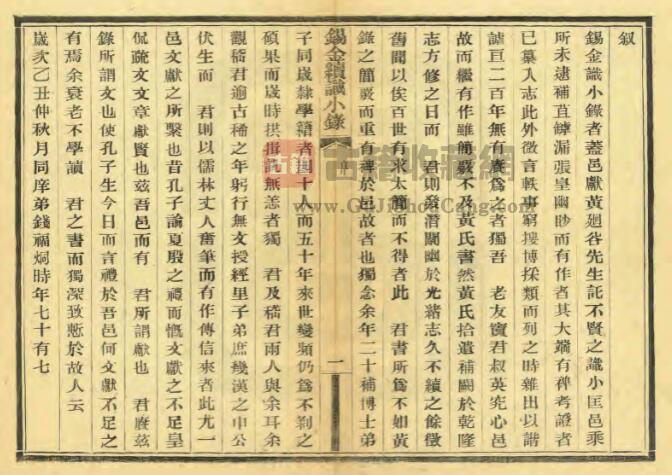 叙
錫金識小錄者蓋邑獻黃廻谷先生託不賢之識小匡邑乘
所未逮補苴罅漏張皇幽眇而有作者其大端有裨考證者
已纂入志此外徵言軼事窮搜博採類而列之時雜出以諧
謔亘二百年無有賡為之者獨吾　老友竇君叔英究心邑
故而繼有作雖簡嚴不及黃氏書然黃氏拾遺補闕於乾隆
志方修之日而　君則發潛闡幽於光緒志久不續之餘徵
舊聞以俟百世有求太簡而不得者此　君書所為不如黃
錄之簡嚴而重有裨於邑故者也獨念余年二十補博士弟
錫金續識小錄
序
一
子同歲隸學籍者四十人而五十年來世變頻仍為不剥之
碩果而歲時拱揖無恙者獨　君及嵇君兩人與余耳余
觀嵇君逾古稀之年躬行無文授經里子弟庶幾漢之申公
伏生而　君則以儒林丈人奮筆而有作傳信來者此尤一
邑文獻之所繫也昔孔子論夏殷之禮而慨文獻之不足皇
侃疏文文章獻賢也茲吾邑而有　君所謂獻也　君賡茲
錄所謂文也使孔子生今日而言禮於吾邑何文獻不足之
有焉余衰老不學讀　君之書而獨深致慙於故人云
歲次乙丑仲秋月同庠弟錢福炯時年七十有七
古籍收藏网
www.GuJiShouCang.com